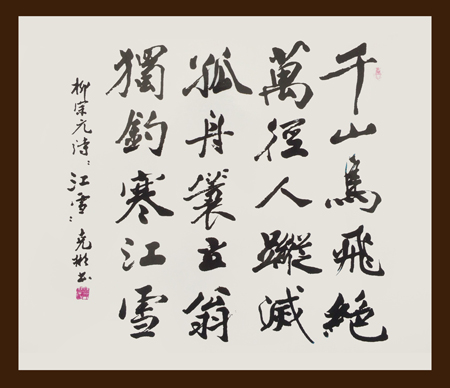 千山鳥飛絕
萬徑人蹤滅
孤舟簑立翁
獨釣寒江雪
柳宗元诗:江雪: 彬书